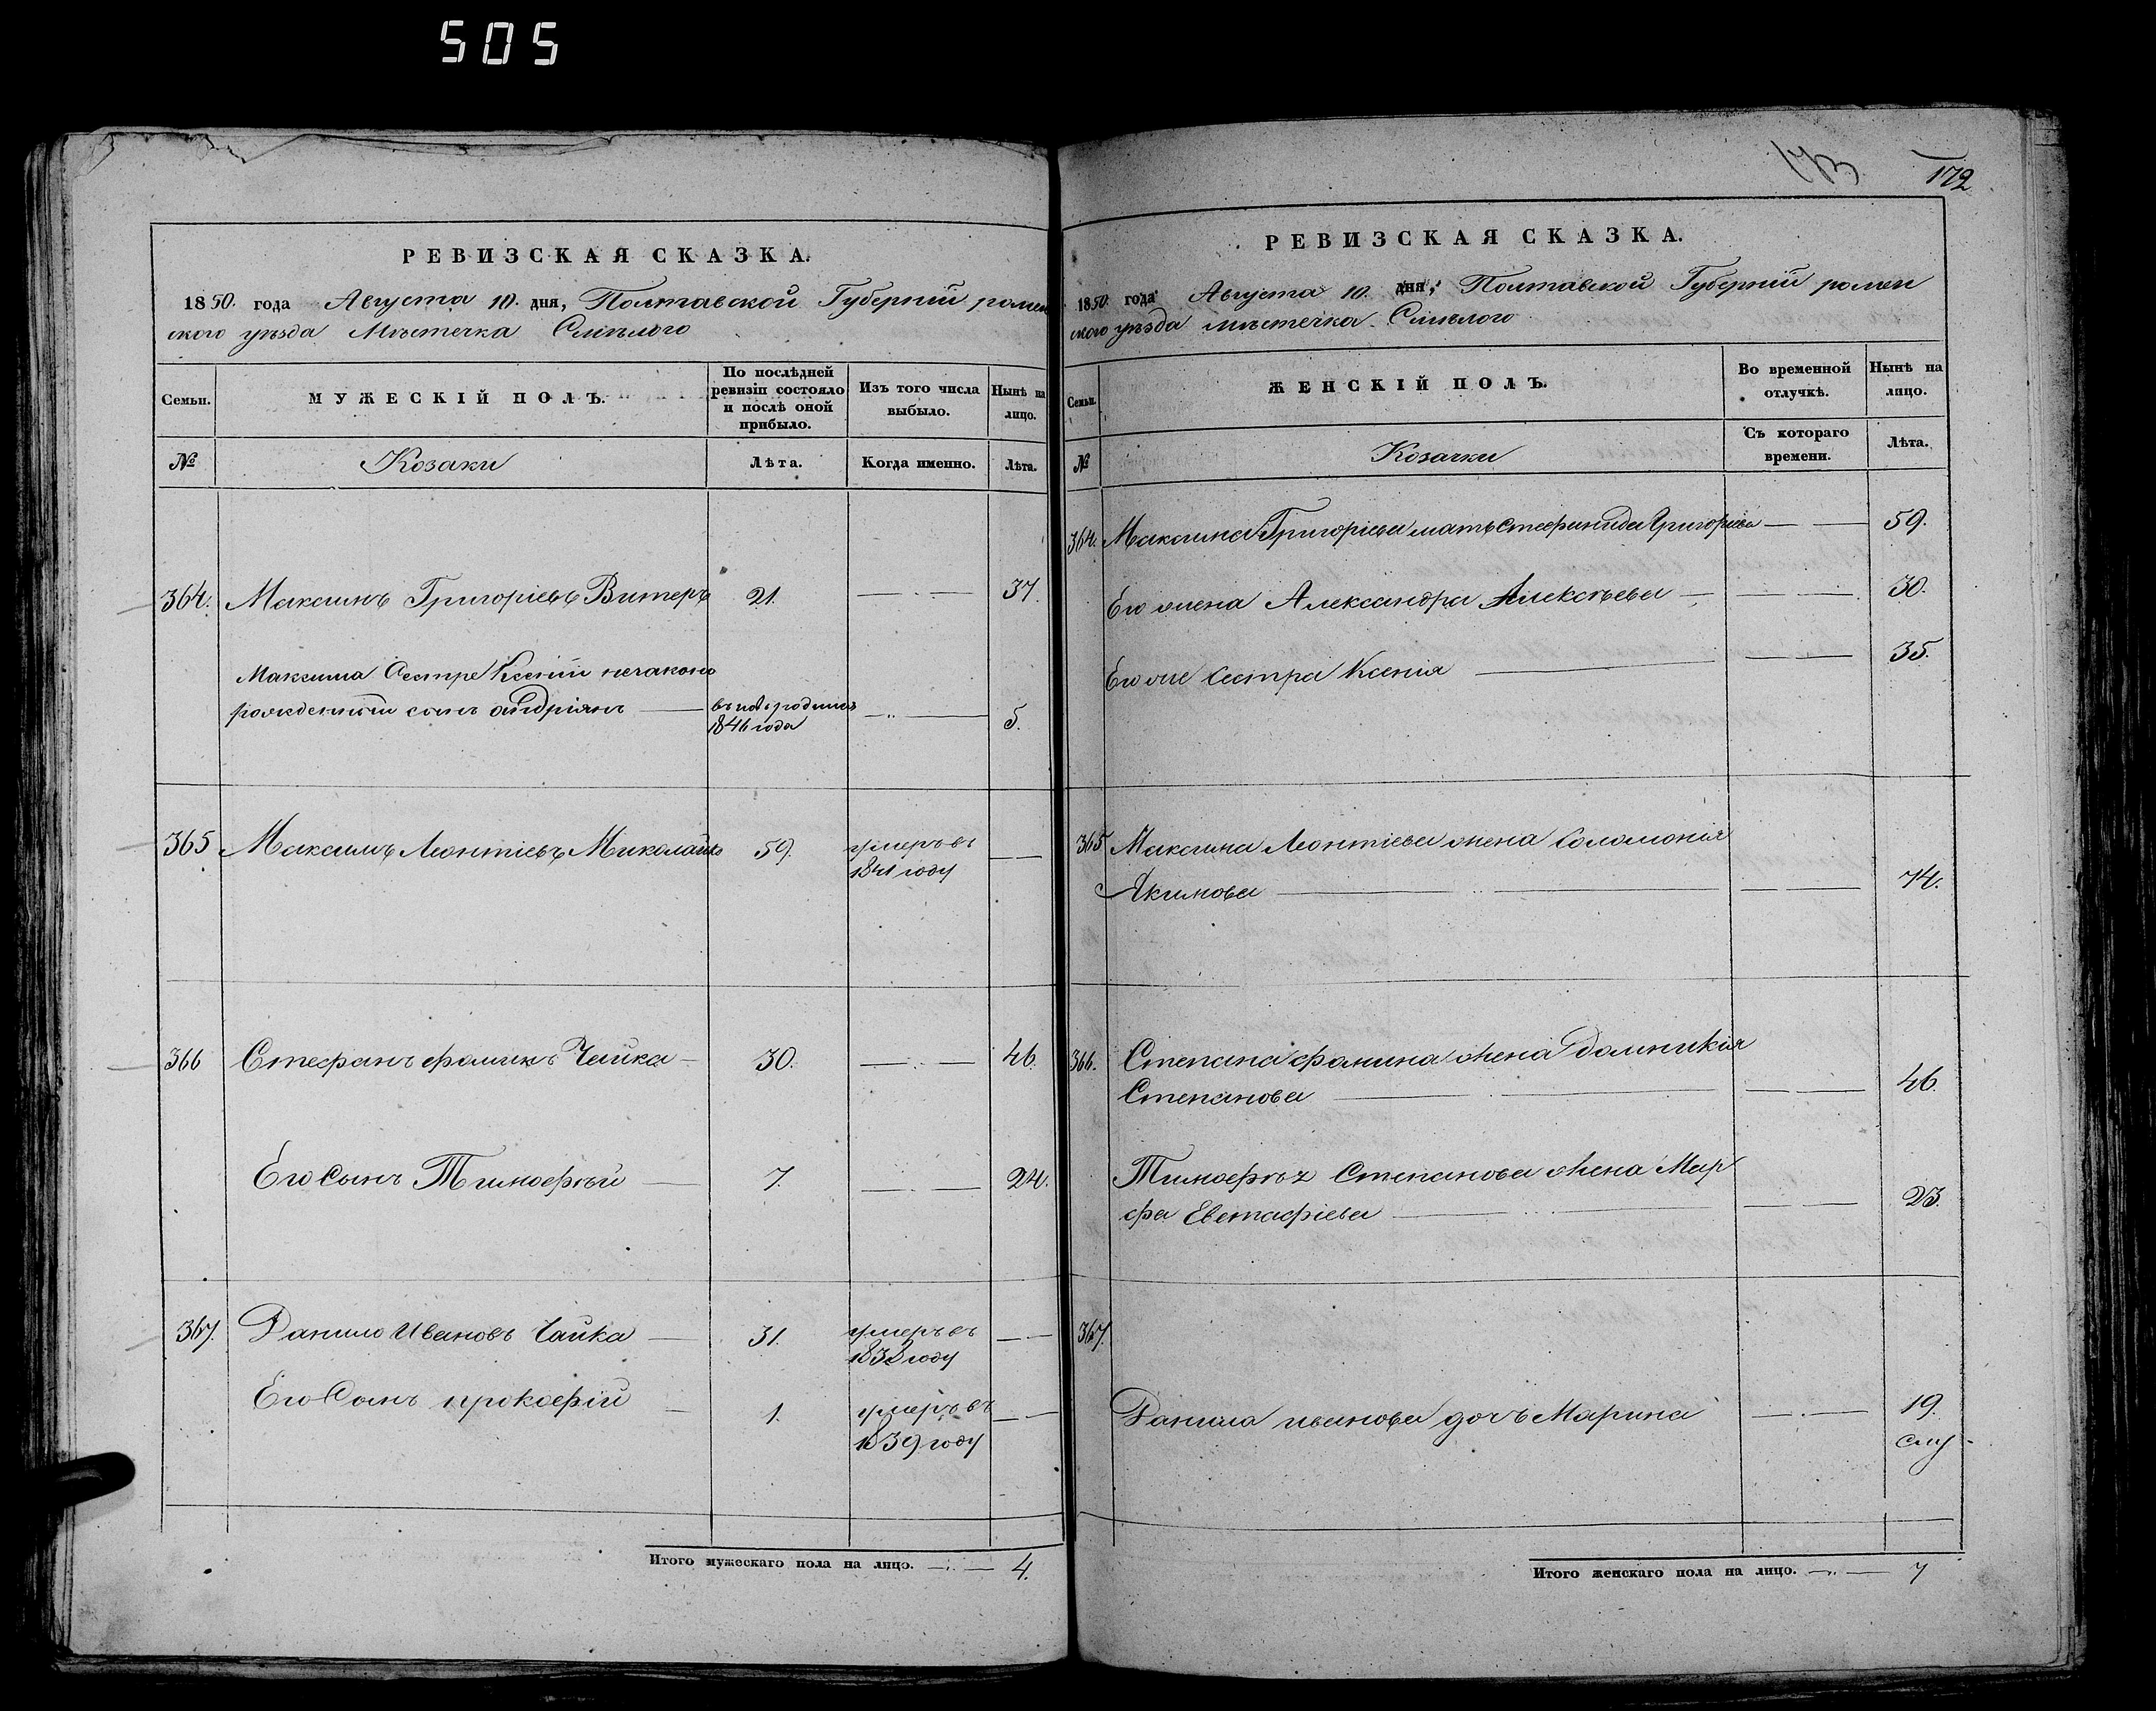 505
РЕВИЗСКАЯ СКАЗКА.
1850. года Августа 10. дня, Полтавской Губерніи ромен
ского уѣзда Мѣстечка Смѣлого
Семьи.
МУЖЕСКІЙ ПОЛЪ.
По послѣдней ревизіи состояло и послѣ оной прибыло.
Изъ того числа выбыло.
Нынѣ на лицо.
№
Козаки
Лѣта.
Когда именно.
Лѣта.
364. Максимъ Григоріевъ Витеръ 21. 37.
Максима Сестре Ксеніи незаконо
рожденный сынъ андріянъ 1846 года 5.
365 Максимъ Леонтіевъ Миколайко 59. умеръ въ
1841 году
366 Стефанъ фоминъ Чайка 30. 46.
Его Сынъ Тимофѣй 7. 24.
367. Данило Ивановъ Чайка 31. умеръ въ
1838 году
Его Сынъ прокофій 1. умеръ въ
1839 году
Итого мужескаго пола на лицо. 4.
173 172
РЕВИЗСКАЯ СКАЗКА.
1850 года Августа 10. дня, Полтавской Губерніи ромен
ского уѣзда мѣстечка Смѣлого
Семьи.
ЖЕНСКІЙ ПОЛЪ.
Во временной отлучкѣ.
Нынѣ на лицо.
№
Козачки
Съ котораго времени.
Лѣта.
364. Максима Григоріева мать Стефанида Григоріева 59.
Его жена Александра Алексѣева 30.
Его же Сестра Ксенія 35.
365 Максима Леонтіева жена Соломонія
Якимова 74.
366. Степана фомина жена Домникія
Степанова 46.
Тимофѣя Степанова жена Мар
фа Евстафіева 23.
367.
Данила иванова дочь Марина 19.
Итого женскаго пола на лицо. 7